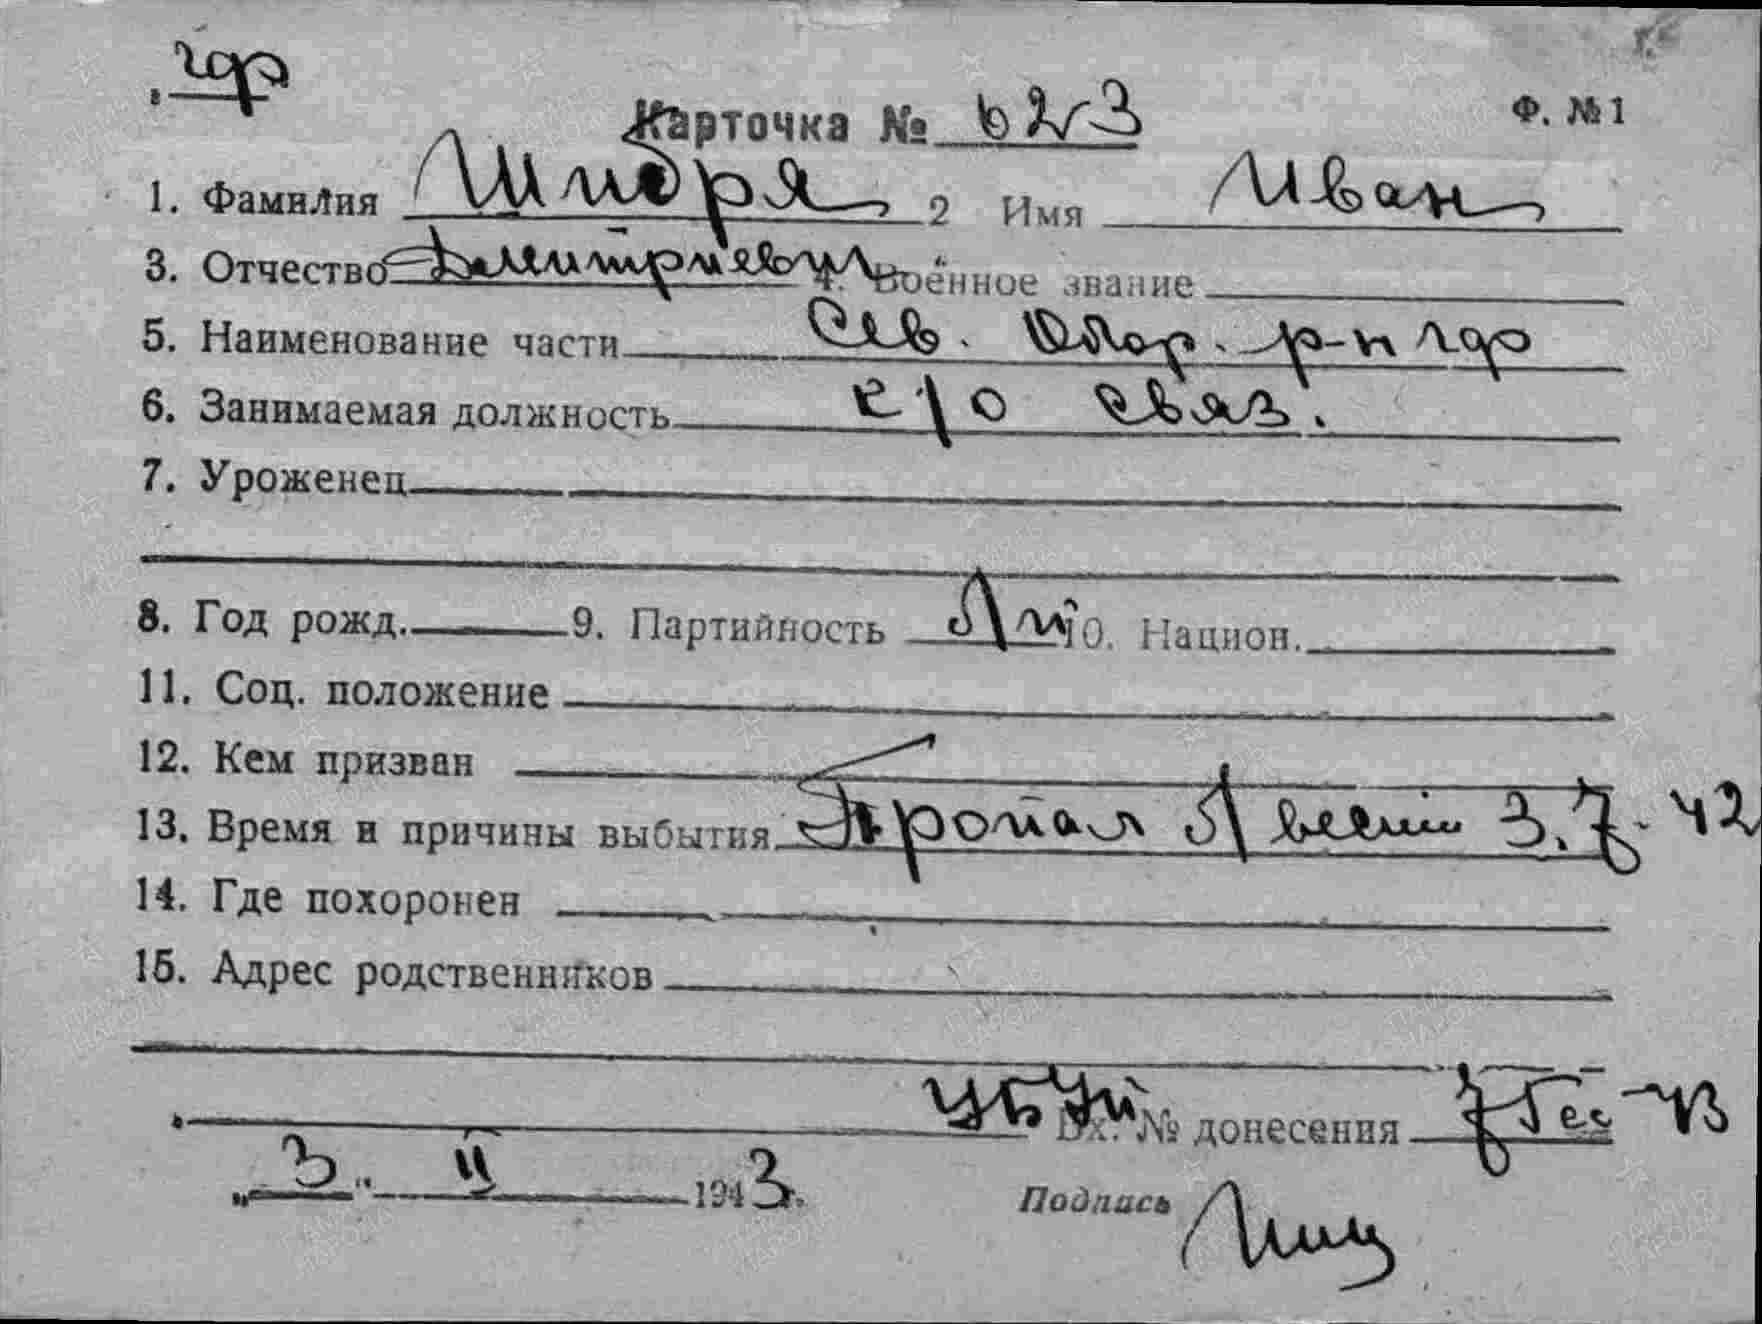 гдр
Карточка № 623 Ф. №1
1. Фамилия Шибря 2 Имя Иван
3. Отчество Дмитриевич 4. Военное звание
5. Наименование части Сев. Обор. р-н гдр
6. Занимаемая должность к/о связ.
7. Уроженец
8. Год рожд. 9. Партийность 10. Национ.
11. Соц. положение
12. Кем призван
13. Время и причины выбытия Пропал Л вести 3.7.42
14. Где похоронен
15. Адрес родственников
Вх. № донесения
"3" II 1943.
Подпись